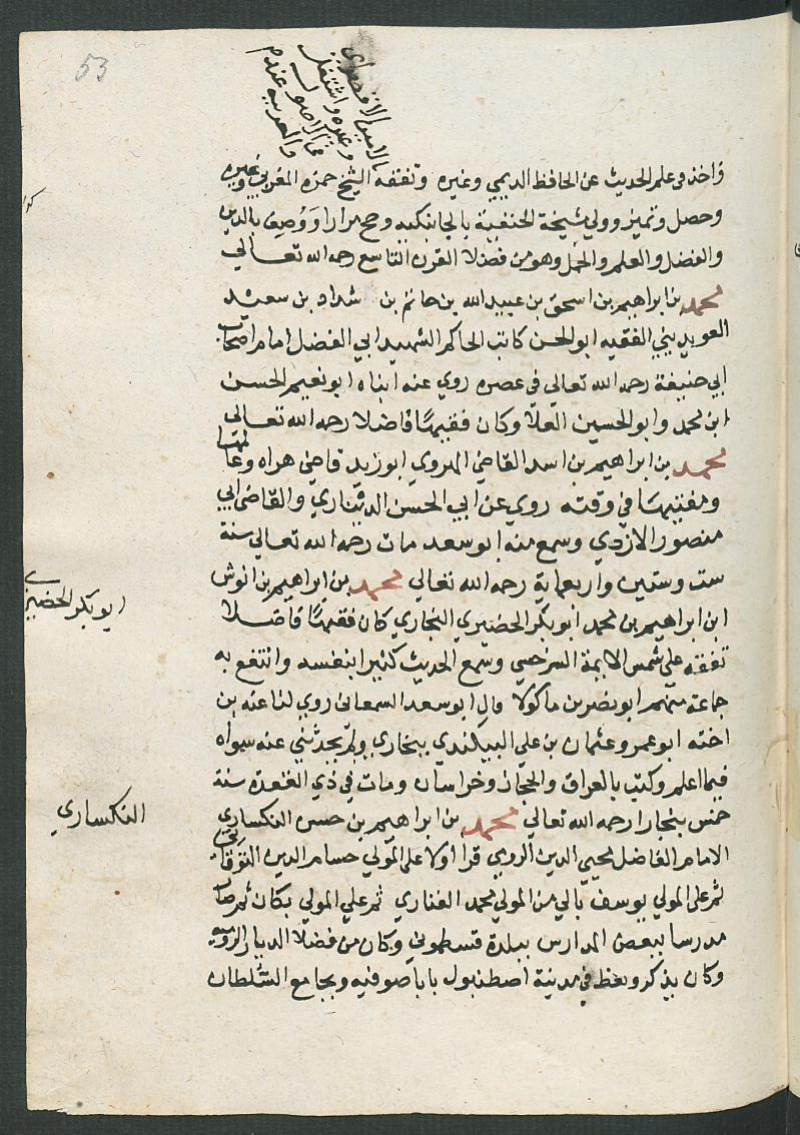 53
الامين الاقصرائي
وغيره واشتغل
في الاصول
والعربية عندهم
واخذ في علم الحديث عن الحافظ الديمي وغيره وتفقه الشيخ حمزه المغربي وغيره
وحصل وتميز وولي مشيخة الحنفية بالجانبكيه وحج مرارا ووصف بالدين
والفضل والعلم والحلم وهو من فضلا القرن التاسع رحمه الله تعالي
محمد بن ابراهيم بن اسحق بن عبيد الله بن حاتم بن شداد بن سعيد
العويديني الفقيه ابو الحسن كاتب الحاكم الشهيد ابي الفضل امام اصحاب
ابي حنيفة رحمه الله تعالي في عصره روي عنه ابناه ابو نعيم الحسن
ابن محمد وابو الحسين العلا وكان فقيها فاضلا رحمه الله تعالي
محمد بن ابراهيم بن اسد القاضي الهروي ابو زيد قاضي هراه وعالمها
ومفتيها في وقته روي عن ابي الحسن الديناري والقاضي ابي
منصور الازدي وسمع منه ابو سعد مات رحمه الله تعالي سنة
ست وستين واربعماية رحمه الله تعالي محمد بن ابراهيم بن انوش
ابن ابراهيم بن محمد ابو بكر الحضيري البخاري كان فقيها فاضلا
تفقه علي شمس الايمة السرخسي وسمع الحديث كثيرا بنفسه وانتفع به
جماعة منهم ابو نصر بن ماكولا قال ابو سعد السمعاني روي لنا عنه بن
اخته ابو عمرو عثمان بن علي البيكندي ببخاري ولم يحدثني عنه سواه
فيما اعلم وكتب بالعراق والحجاز وخراسان ومات في ذي القعدة سنة
خمس ببخارا رحمه الله تعالي محمد بن ابراهيم بن حسن النكساري
الامام الفاضل محيي الدين الرومي قرا اولا علي المولي حسام الدين التوقاتي
ثم علي المولي يوسف بالي بن المولي محمد الفناري ثم علي المولي يكان ثم صار
مدرسا ببعض المدارس ببلدة قسطموني وكان من فضلا الديار الروميه
وكان يذكر ويعظ في مدينة اصطنبول بايا صوفيه وبجامع السلطان
ابو بكر الحضيري
النكساري